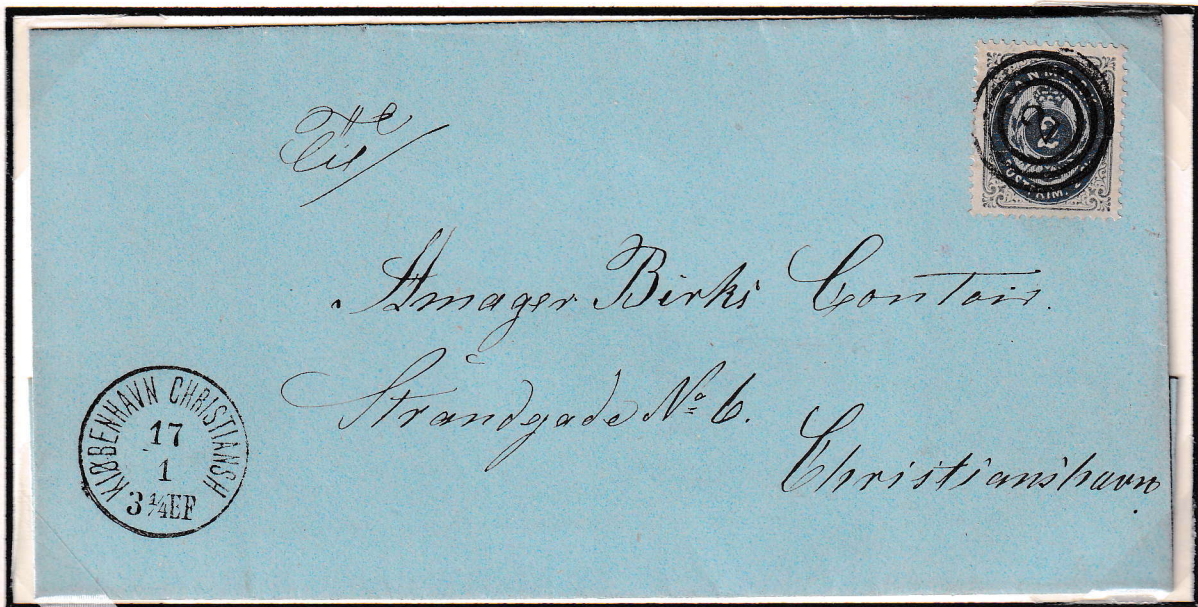 Til
Amager Birks Contoir.
Strandgade No 6.
Christianshavn
KIØBENHAVN CHRISTIANSH
17
1
3 1/4 EF
2
POSTFRIM. 2